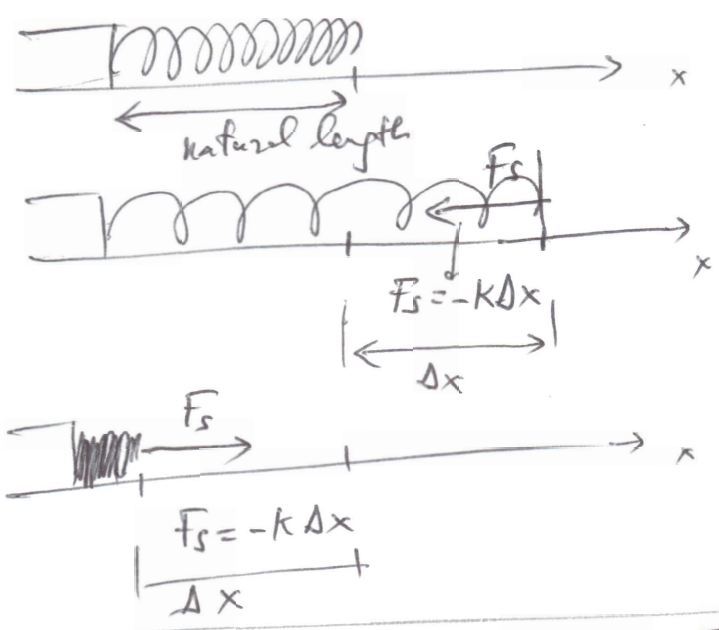 x
natural length
Fs
x
Fs = -KΔx
Δx
Fs
x
Fs = -KΔx
Δx